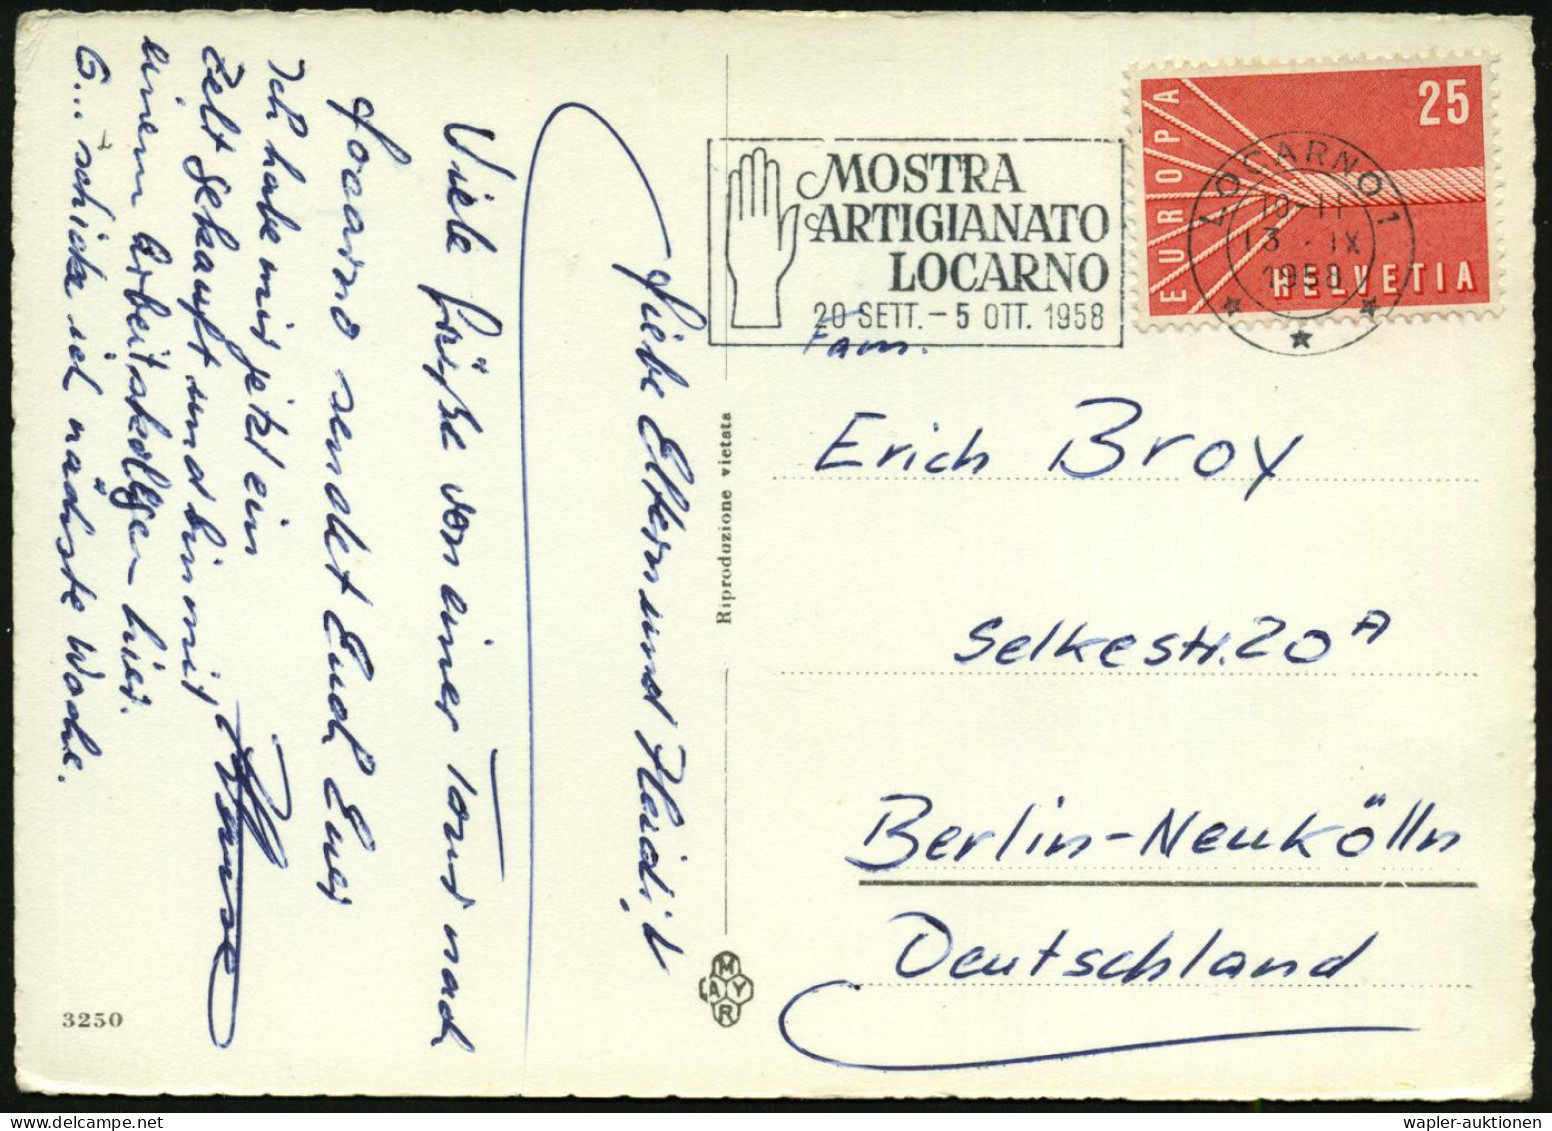 Liebe Eltern und Heidi!
Viele Grüße von einer Tour nach
Locarno sendet Euch Euer
Ich habe mir jetzt ein
Zelt gekauft und bin mit
einem Arbeitskollegen hier.
G... schicke ich nächste Woche.
3250
Riproduzione vietata
MAYR
MOSTRA
ARTIGIANATO
LOCARNO
20 SETT. - 5 OTT. 1958
EUROPA
25
HELVETIA
LOCARNO 1
13. IX
1958
Fam.
Erich Broy
Selkestr. 20 A
Berlin-Neukölln
Deutschland
wapler-auktionen